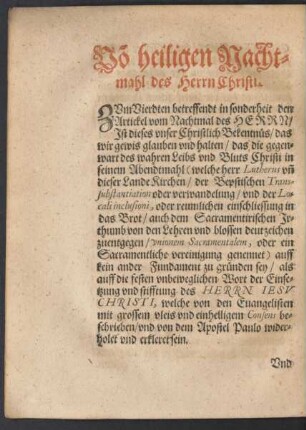 Võ heiligen Nacht-
mahl des Herrn Christi.
ZVm Vierdten betreffendt in sonderheit den
Artickel vom Nachtmal des HERRN/
Ist dieses vnser Christlich Bekentnüs/ das
wir gewis glauben vnd halten/ das die gegen-
wart des wahren Leibs vnd Bluts Christi in
seinem Abendtmahl (welche herr Lutherus vñ
dieser Lande Kirchen/ der Bepstischen Tran-
substantiation oder verwandelung/ vnd der Lo-
cali inclusioni, oder reumlichen einschliessung in
das Brot/ auch dem Sacramentirischen Ir-
thumb von den Lehren vnd blossen deutzeichen
zuentgegen/ vnionem Sacramentalem, oder ein
Sacramentliche vereinigung genennet) auff
kein ander Fundament zu gründen sey/ als
auff die festen vnbeweglichen Wort der Einse-
tzung vnd stifftung des HERRN IESV
CHRISTI, welche von den Euangelisten
mit grossem vleis vnd einhelligem Consens be-
schrieben/ vnd von dem Apostel Paulo wider-
holet vnd erkleret sein.
Vnd